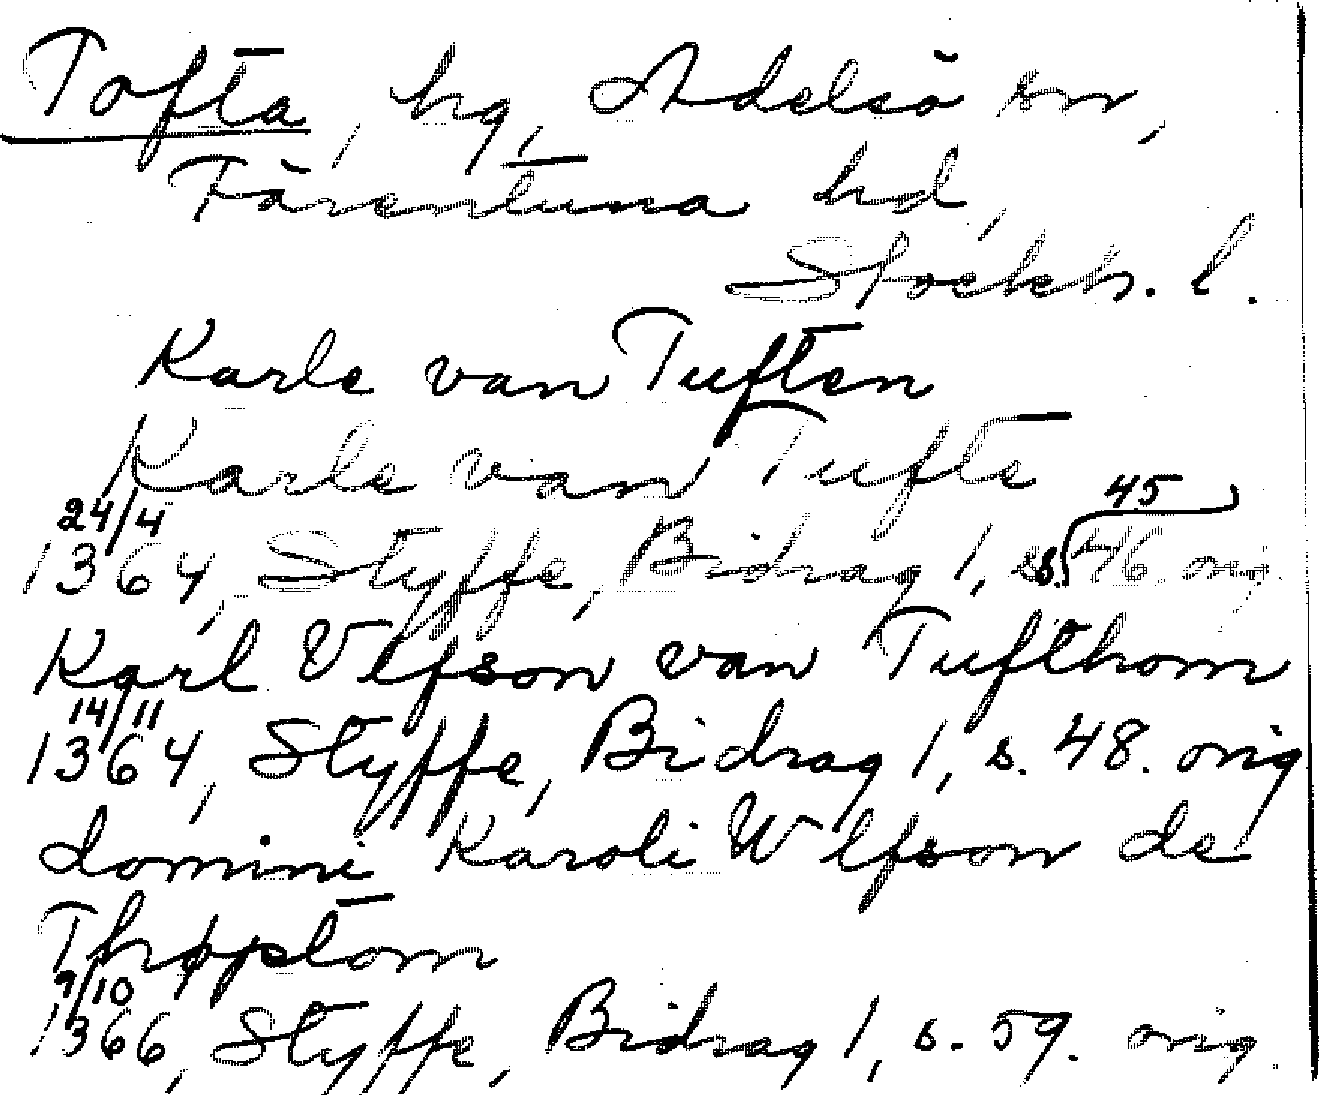 Tofta, hg, Adelsö sn,
Färentuna hd,
Stockh. l.
Karle van Tuften
Karle van Tufte
24/4 45
1364, Styffe, Bidrag 1, s. 46. orig.
Karl Vlfson van Tufthom
14/11
1364, Styffe, Bidrag 1, s. 48. orig
domini Karoli Wlfson de
Thoptom
9/10
1366, Styffe, Bidrag 1, s. 59. orig.